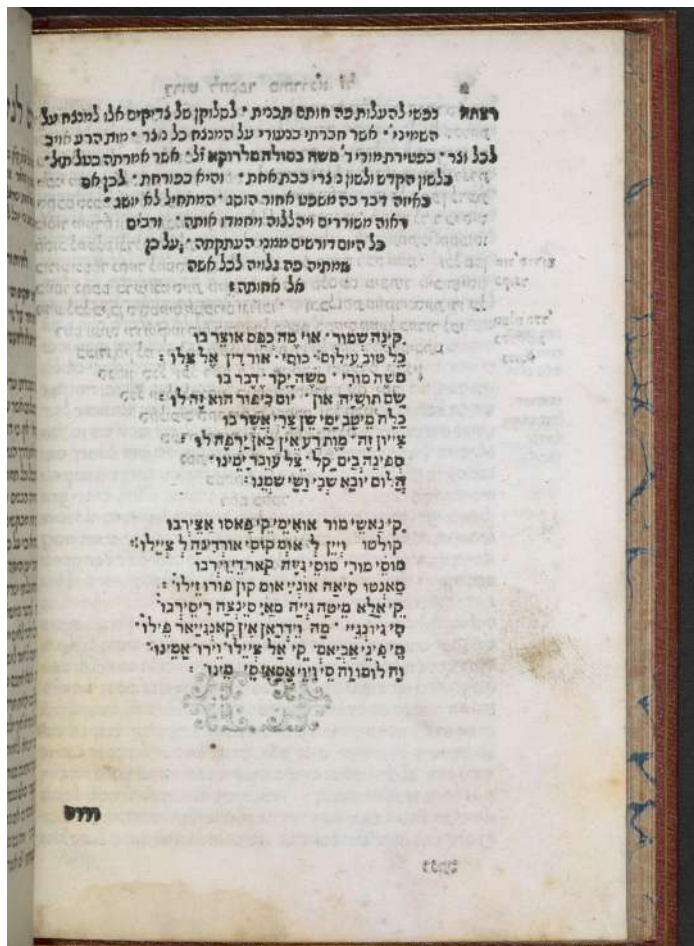 רצתה נפשי להעלות פה חותם תכנית · לסלוקן של צדיקים אלו למנצח על
השמיני · אשר חברתי בנעורי על המנצח כל נוצר · מות הרע אויב
לכל יצר · בפטירת מורי ר' משה בסולה מלרוקא זל · אשר אמרתה בעל תול ·
בלשון הקדש ולשון נוצרי בבת אחת · והיא כפורחת · לכן אם
באיזה דבר בה משפט אחור הוסג · המתחיל לא יושג ·
ראוה משוררים ויהללוה ויחמדו אותה · ורבים
כל היום דורשים ממני העתקתה · על כן
שמתיה פה גלויה לכל אשה
אל אחותה :
קינה שמור · אוי מה כפס אוצר בו
כל טוב עילום · כוסי · אור דין אל צלו :
משה מורי · משה יקר דבר בו
שם תושיה און · יום כיפור הוא זה לו :
כלה מיטב ימי שן צרי אשר בו
ציון זה · מות רע אין כאן ירפה לו :
ספינה בים קל · צל עובר ימינו ·
הלום יובא שבי ושי שמנו :
קי נאשי מור אואימי קי פאסו אצירבו
קולטו ויין ל אום קוסי אורדינה ל צײלו :
מוסי מורי מוסי גיה קאר דיוירבו
סאנטו סיאה אוניי אום קון פורו זילו :
קי אלא מיטה גייה מאי סינצה ריסירבו ·
סי גיונגיי · מה וידראן אין קאנגייאר פילו
סי פיני אביאם קי אל צײלו וירו אמינו
וה לומו וה סי ויוי אסאי סי מינו :
דרוש